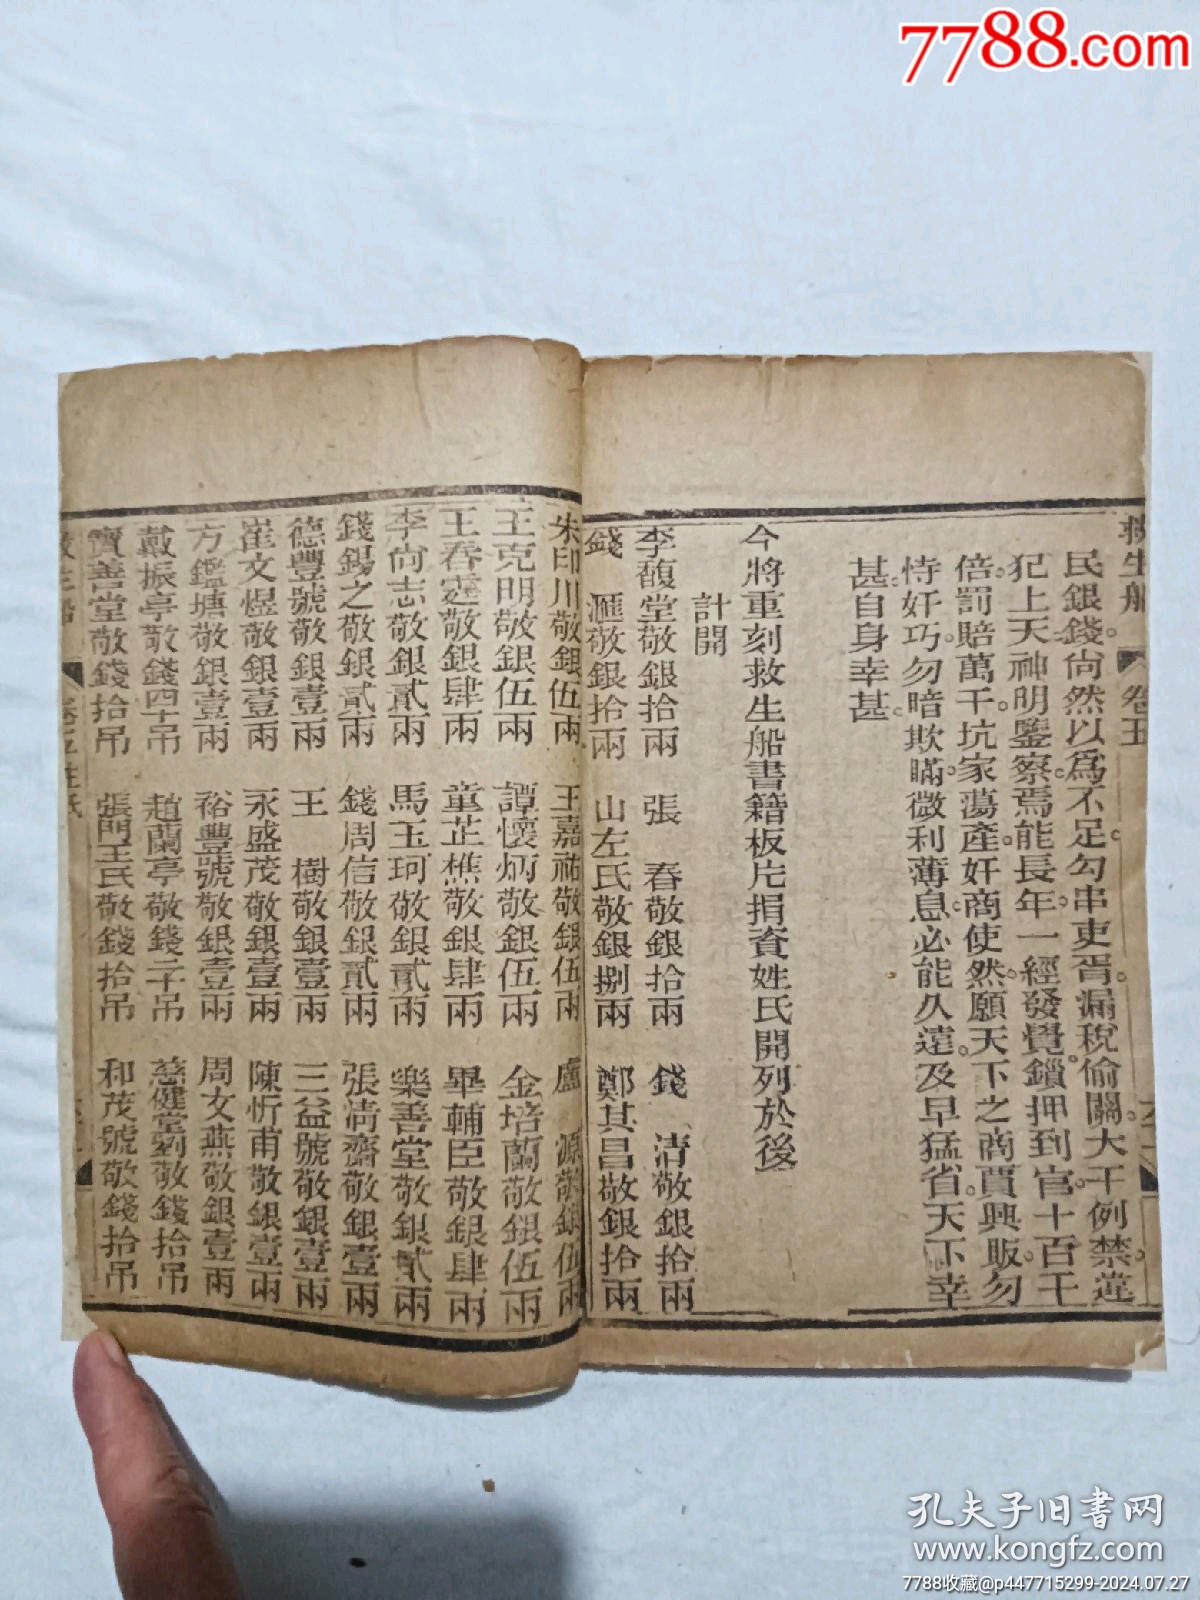 7788.com
救生船 卷五
民銀錢尚然以爲不足勾串吏胥漏稅偷關大干例禁違
犯上天神明鑒察焉能長年一經發覺鎖押到官十百千
倍罰賠萬千坑家蕩產奸商使然願天下之商賈興販勿
恃奸巧勿暗欺瞞微利薄息必能久遠及早猛省天下幸
甚自身幸甚
今將重刻救生船書籍板片捐資姓氏開列於後
計開
李馥堂敬銀拾兩 張春敬銀拾兩 錢清敬銀拾兩
錢滙敬銀拾兩 山左氏敬銀捌兩 鄭其昌敬銀拾兩
朱印川敬銀伍兩 王嘉祐敬銀伍兩 盧源敬銀伍兩
王克明敬銀伍兩 譚懷炳敬銀伍兩 金培蘭敬銀伍兩
王春霆敬銀肆兩 童芷樵敬銀肆兩 畢輔臣敬銀肆兩
李尚志敬銀貳兩 馬玉珂敬銀貳兩 樂善堂敬銀貳兩
錢錫之敬銀貳兩 錢周信敬銀貳兩 張清齋敬銀壹兩
德豐號敬銀壹兩 王樹敬銀壹兩 三益號敬銀壹兩
崔文煜敬銀壹兩 永盛茂敬銀壹兩 陳忻甫敬銀壹兩
方鑑塘敬銀壹兩 裕豐號敬銀壹兩 周文燕敬銀壹兩
戴振亭敬錢四十吊 趙蘭亭敬錢二十吊 慈健堂劉敬錢拾吊
寶善堂敬錢拾吊 張門王氏敬錢拾吊 和茂號敬錢拾吊
孔夫子旧书网
www.kongfz.com
7788收藏@p447715299-2024.07.27